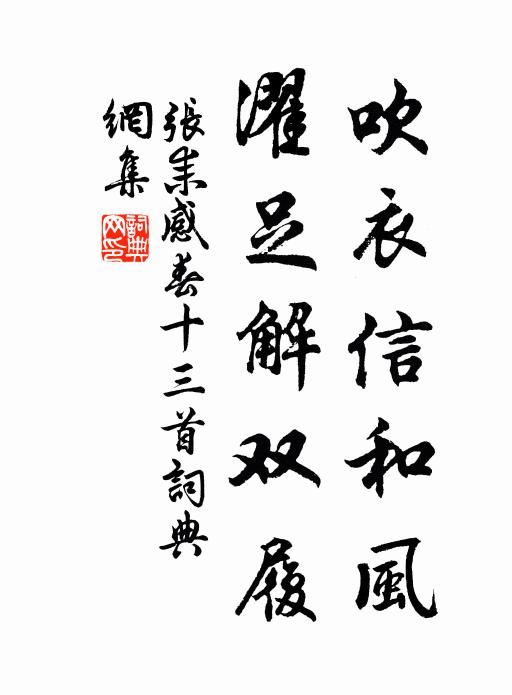 吹衣信和風
濯足解双履
張耒感春十三首詞典
網集
詞典
网印